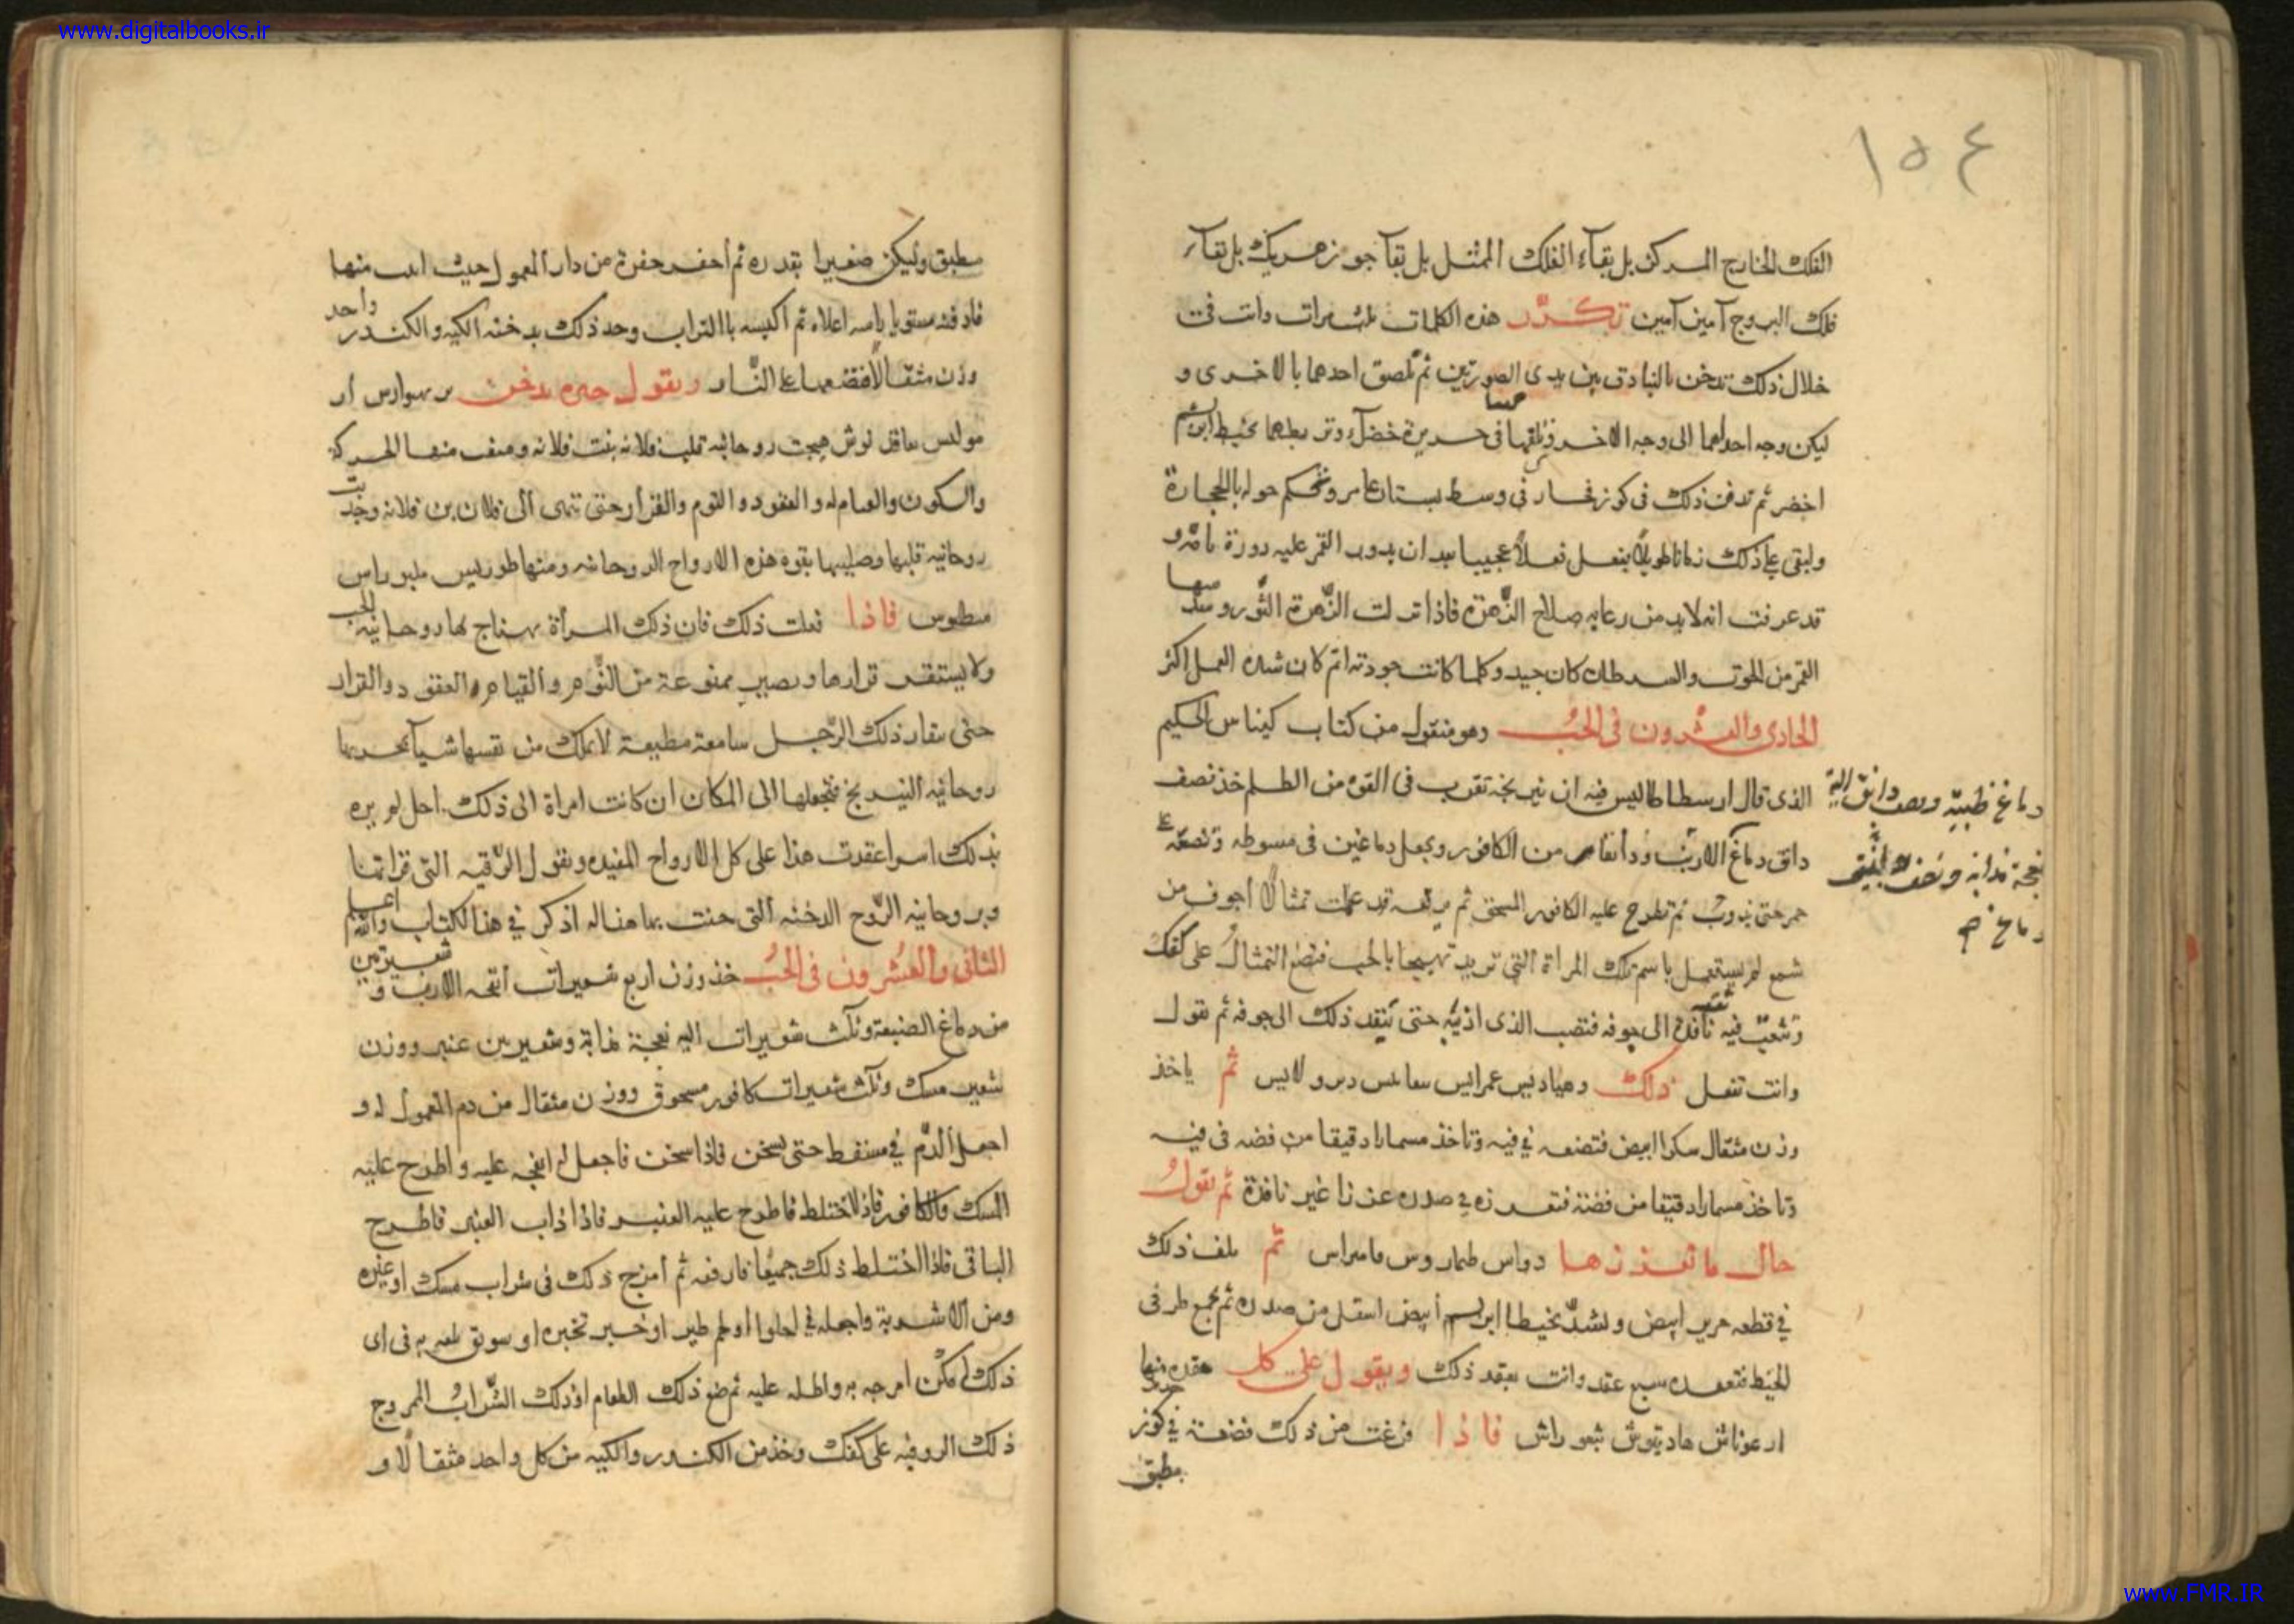 www.digitalbooks.ir
١٥٤
الفلك الخارج المركز بل بقاء الفلك الممثل بل بقآ جوزهريك بل بقآء
فلك البروج آمين آمين تكرّر هذه الكلمات ثلث مرات وانت فى
خلال ذلك تدخن بالبنادق بين يدى الصورتين ثم تلصق احدهما بالاخرى و
ليكن وجه احداهما الى وجه الاخر وتلقهما فى حريرة خضرآء وتربطهما بخيط ابريسم
اخضر ثم تدفن ذلك فى كوز فخار فى وسط بستان عامر وتحكم حوله بالحجارة
وابقى على ذلك زمانا طويلاً يفعل فعلاً عجيبا بعد ان يدور القمر عليه دورة تامّة و
قد عرفت انه لابد من رعايه صلاح الزّهرة فاذا نزلت الزّهرة الثّور و
القمر من الحوت والسرطان كان جيد وكلما كانت جودته اتم كان شده العمل اكثر
الحادى والعشرون فى الحُبّ وهو منقول من كتاب كيناس الحكيم
الذى قال ارسطاطاليس فيه ان نيرنجه تقرب فى القوه من الطلسم خذ نصف
دانق دماغ الارنب ودانقا من الكافور ويجعل دماغين فى مسوطه وتضعه على
دماغ ظبيّة ونصف دانق الية
نعجة مذابه ونصف
دماغ
جمر حتى يذوب ثم تطرح عليه الكافور المسحق ثم ترفعه وقد عملت تمثالاً أجوف من
شمع لم يستعمل باسم تلك المراة التى تريد تهيجها بالحب فتضع التمثال على كفك
وتثقب فيه ثقبه نافذة الى جوفه فتصب الذى اذبته حتى ينفذ ذلك الى جوفه ثم تقول
وانت تفعل ذلك ثم ياخذ
وزن مثقال سكرا ابيض فتضعه فى فيه وتاخذ مسمارا دقيقا من فضه فى فيه
وتاخذ مسمارا دقيقا من فضة فتغرزه فى صدره غرزا غير نافذة ثم تقولُ
حال ما تغرزها دواس طماروس مامراس ثم تلف ذلك
فى قطعه حرير ابيض وتشدّ بخيط ابريسم أبيض اسفل من صدره ثم تجمع طرفى
الخيط فتعقده سبع عقد وانت بعقد ذلك ويقول على كل عقده منها
ارغوناش هاديتوش فاذا فرغت من ذلك فضعة فى كوز
مطبق
مطبق وليكن صغيرا بقدره ثم أحفر حفرة من دار المعمول حيث اسـ منها
فادفنه مستويا راسه اعلاه ثم اكبسه باالتراب وخذ ذلك بدخنه الكيه والكندر واحد
وزن مثقالاً فضعهما على النّار ويقول حين يدخن
هيجت روحانيه قلب فلانه بنت فلانه ومنعت منها الحركة
والسكون والقيام له والقعود والنوم والقرأر حتى تنتهى الى فلان بن فلانه وجذبت
روحانيه قلبها وصلبها بقوه هذه الارواح الروحانيه ومنها طوريس
فاذا فعلت ذلك فان ذلك المرأة يهتاج لها روحانيه الحب
ولا يستقر قرارها وتصير ممنوعة من النّوم والقيام والقعود والقرار
حتى ينقاد ذلك الرّجل سامعة مطيعة لا تملك من نفسها شيآ بحذبها
روحانيه النيرنج فتجعلها الى المكان ان كانت امراة الى ذلك.
بذلك اسرا عقدت هذا على كل الارواح المفيده ويقول الرّقيه التى قراتها
وبروحانيه الرّوح الدخنه التى دخنت بها هناله اذكر فى هذا الكتاب والله اعلم
الثانى والعشرون فى الحُبُ خذ وزن اربع شعيرات انفحه الارنب و شعيرتين
من دماغ الضبعة وثلث شعيرات اليه نعجة مذابة وشعيرتين عنبر ووزن
شعيرتين مسك وثلث شعيرات كافور مسحوق ووزن مثقال من دم المعمول له و
اجعل الدّم فى مسقط حتى يسخن فاذا سخن فاجعل له انفحه عليه واطرح عليه
المسك والكافور فاذا اختلط فاطرح عليه العنبر فاذا ذاب العنبر فاطرح
الباقى فاذا اختلط ذلك جميعا فارفعه ثم أمزج ذلك فى شراب مسك او غيره
ومن الاشربة واجعله فى احلوا او لحم طير او خبز تخبزه او سويق تلته به فى اى
ذلك امكن امزجه به واطله عليه ثم ضع ذلك الطعام او ذلك الشّرابُ الممزوج
ذلك الروقيه على كفك وخذ من الكندر والكيه من كل واحد مثقالاً و
www.FMR.IR